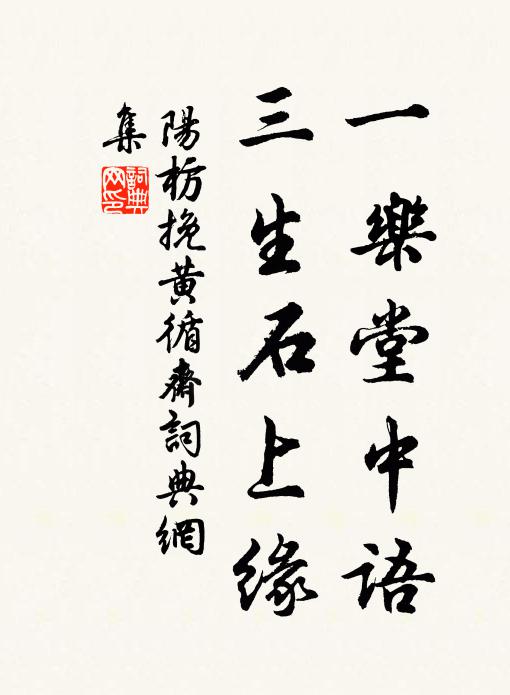 一樂堂中語
三生石上緣
陽枋挽黃循齋詞典網
集
詞典
网印